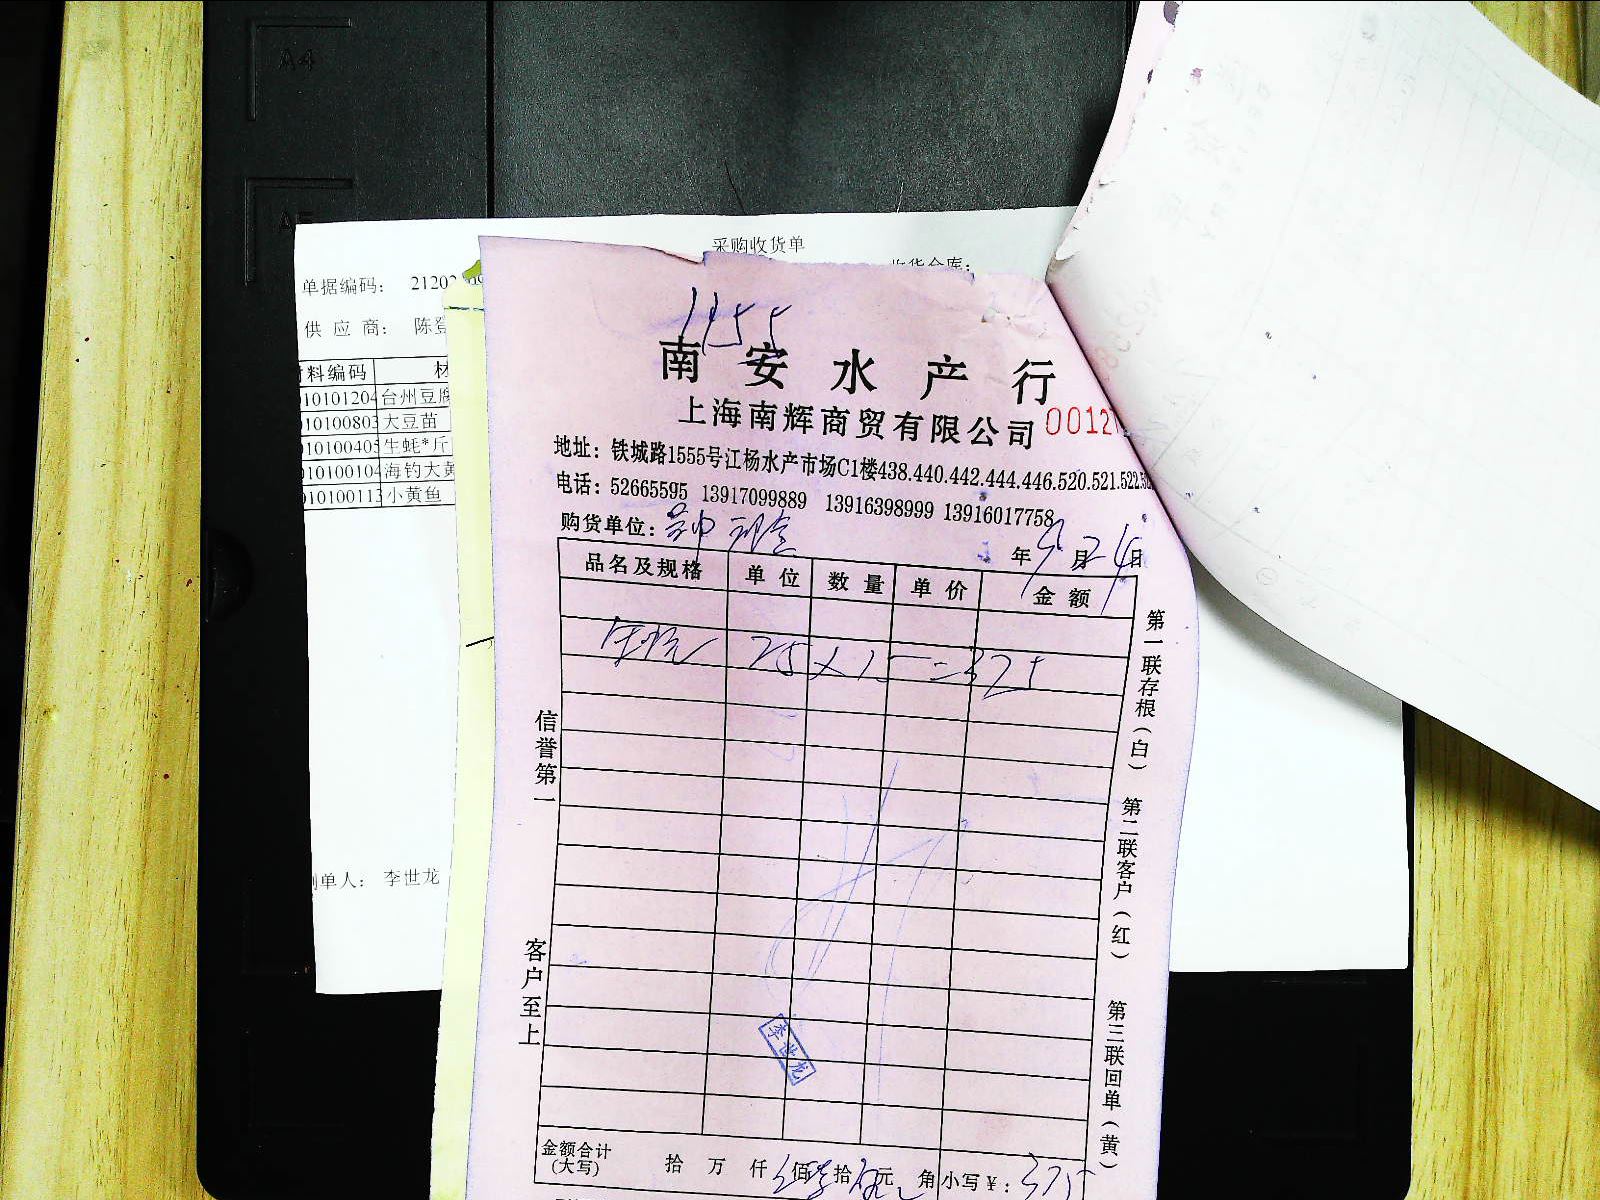 A4
A5
采购收货单
收货仓库：
单据编码：
供 应 商： 陈登
材料编码 材
台州豆腐
大豆苗
生蚝*斤
海钓大黄
小黄鱼
制单人： 李世龙
1155
南安水产行
上海南辉商贸有限公司 0012
地址：铁城路1555号江杨水产市场C1楼438.440.442.444.446.520.521.522.52
电话：52665595 13917099889 13916398999 13916017758
购货单位：
年 9 月 24 日
品名及规格 单位 数量 单价 金额
生蚝 25 × 15 = 375
信誉第一
客户至上
第一联存根（白） 第二联客户（红） 第三联回单（黄）
李世龙
金额合计（大写） 拾 万 仟 佰 拾 元 角 小写¥：375